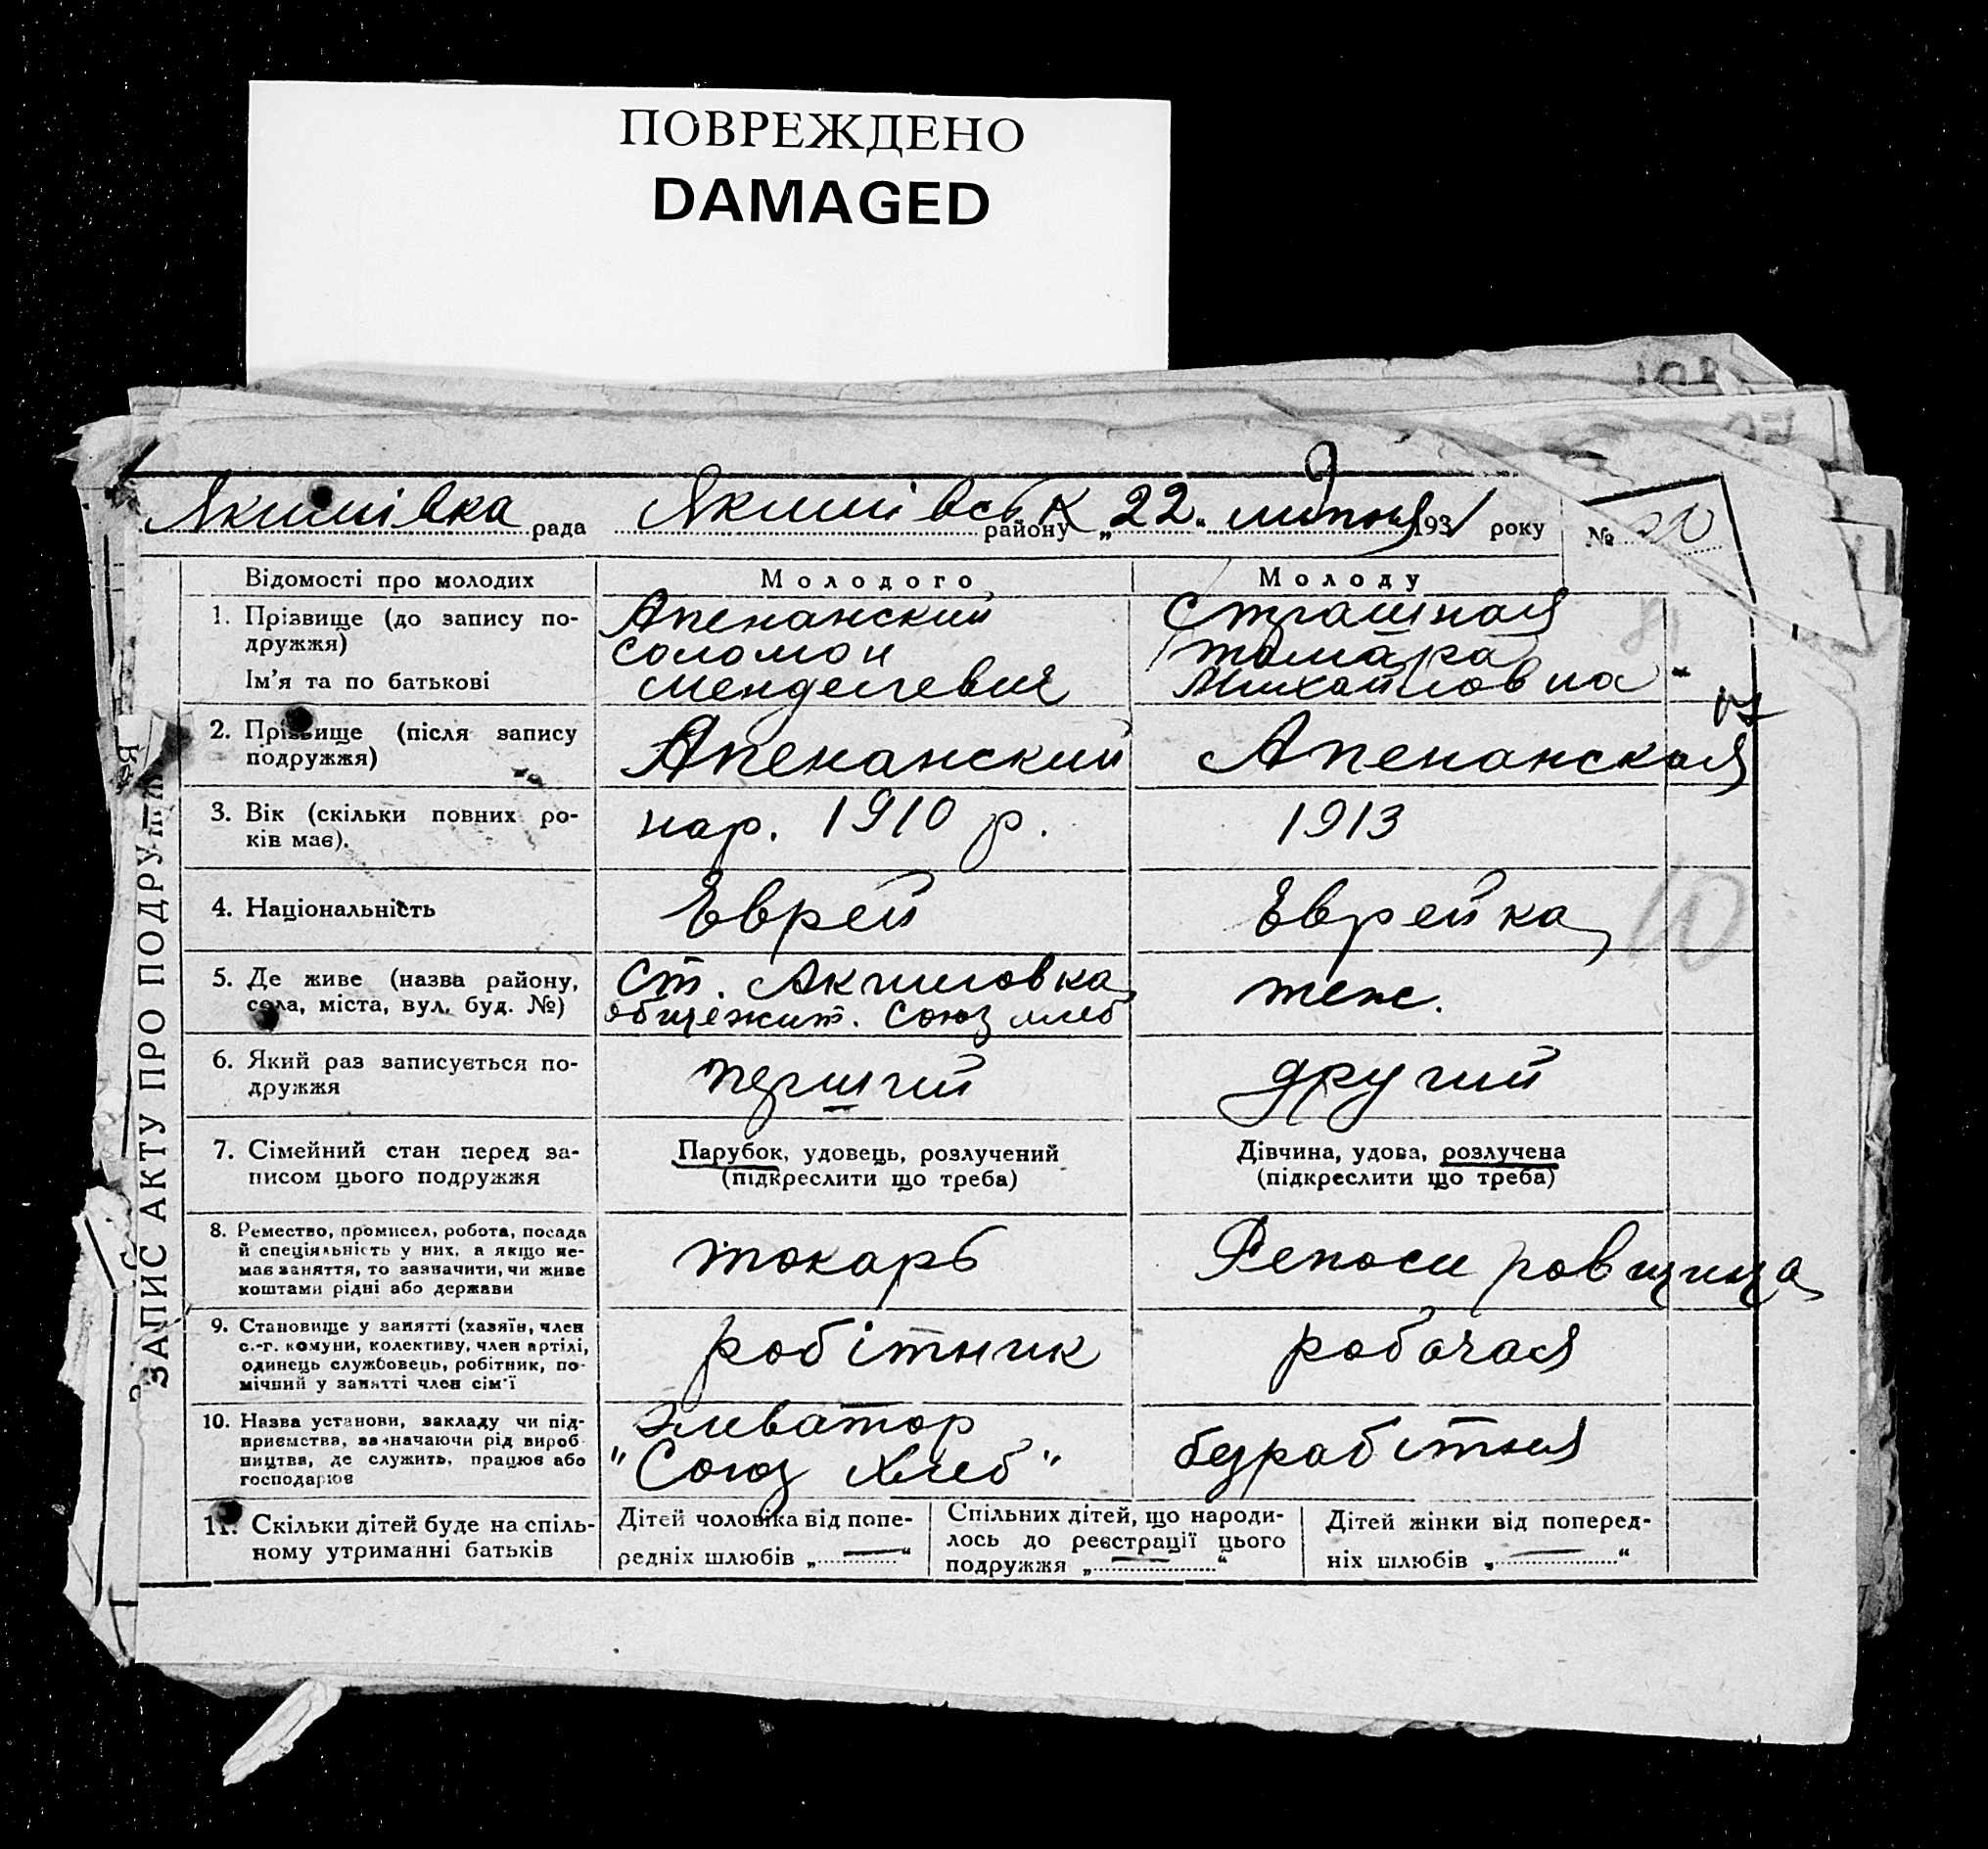 ПОВРЕЖДЕНО
DAMAGED
Якимівка рада Якимівськ району „22„ 1931 року № 20
ЗАПИС АКТУ ПРО ПОДРУЖЖЯ
Відомості про молодих Молодого Молоду
1. Прізвище (до запису по- Апенанский Страшная
дружжя) Соломон Тамара
Ім'я та по батькові Менделевич Михайловна
2. Прізвище (після запису
подружжя) Апенанский Апенанская
3. Вік (скільки повних ро- нар. 1910 р. 1913
ків має).
4. Національність Еврей Еврейка
5. Де живе (назва району, ст. Акимовка теж.
села, міста, вул. буд. №) общежит. Союзхлеб
6. Який раз записується по- перший другий
дружжя
7. Сімейний стан перед за- Парубок, удовець, розлучений Дівчина, удова, розлучена
писом цього подружжя (підкреслити що треба) (підкреслити що треба)
8. Ремество, промисел, робота, посада
й спеціяльність у них, а якщо не- токарь
має заняття, то зазначити, чи живе
коштами рідні або держави
9. Становище у занятті (хазяїн, член
с.-г. комуни, колективу, член артілі, робітник робочая
одинець службовець, робітник, по-
мічний у занятті член сім'ї
10. Назва установи, закладу чи під- элеватор
приємства, зазначаючи рід вироб- "Союз Хлеб" безрабітня
ництва, де служить, працює або
господарює
11. Скільки дітей буде на спіль- Дітей чоловіка від попе- Спільних дітей, що народи- Дітей жінки від поперед-
ному утриманні батьків редніх шлюбів „—“ лось до реєстрації цього ніх шлюбів „—“
подружжя „—“